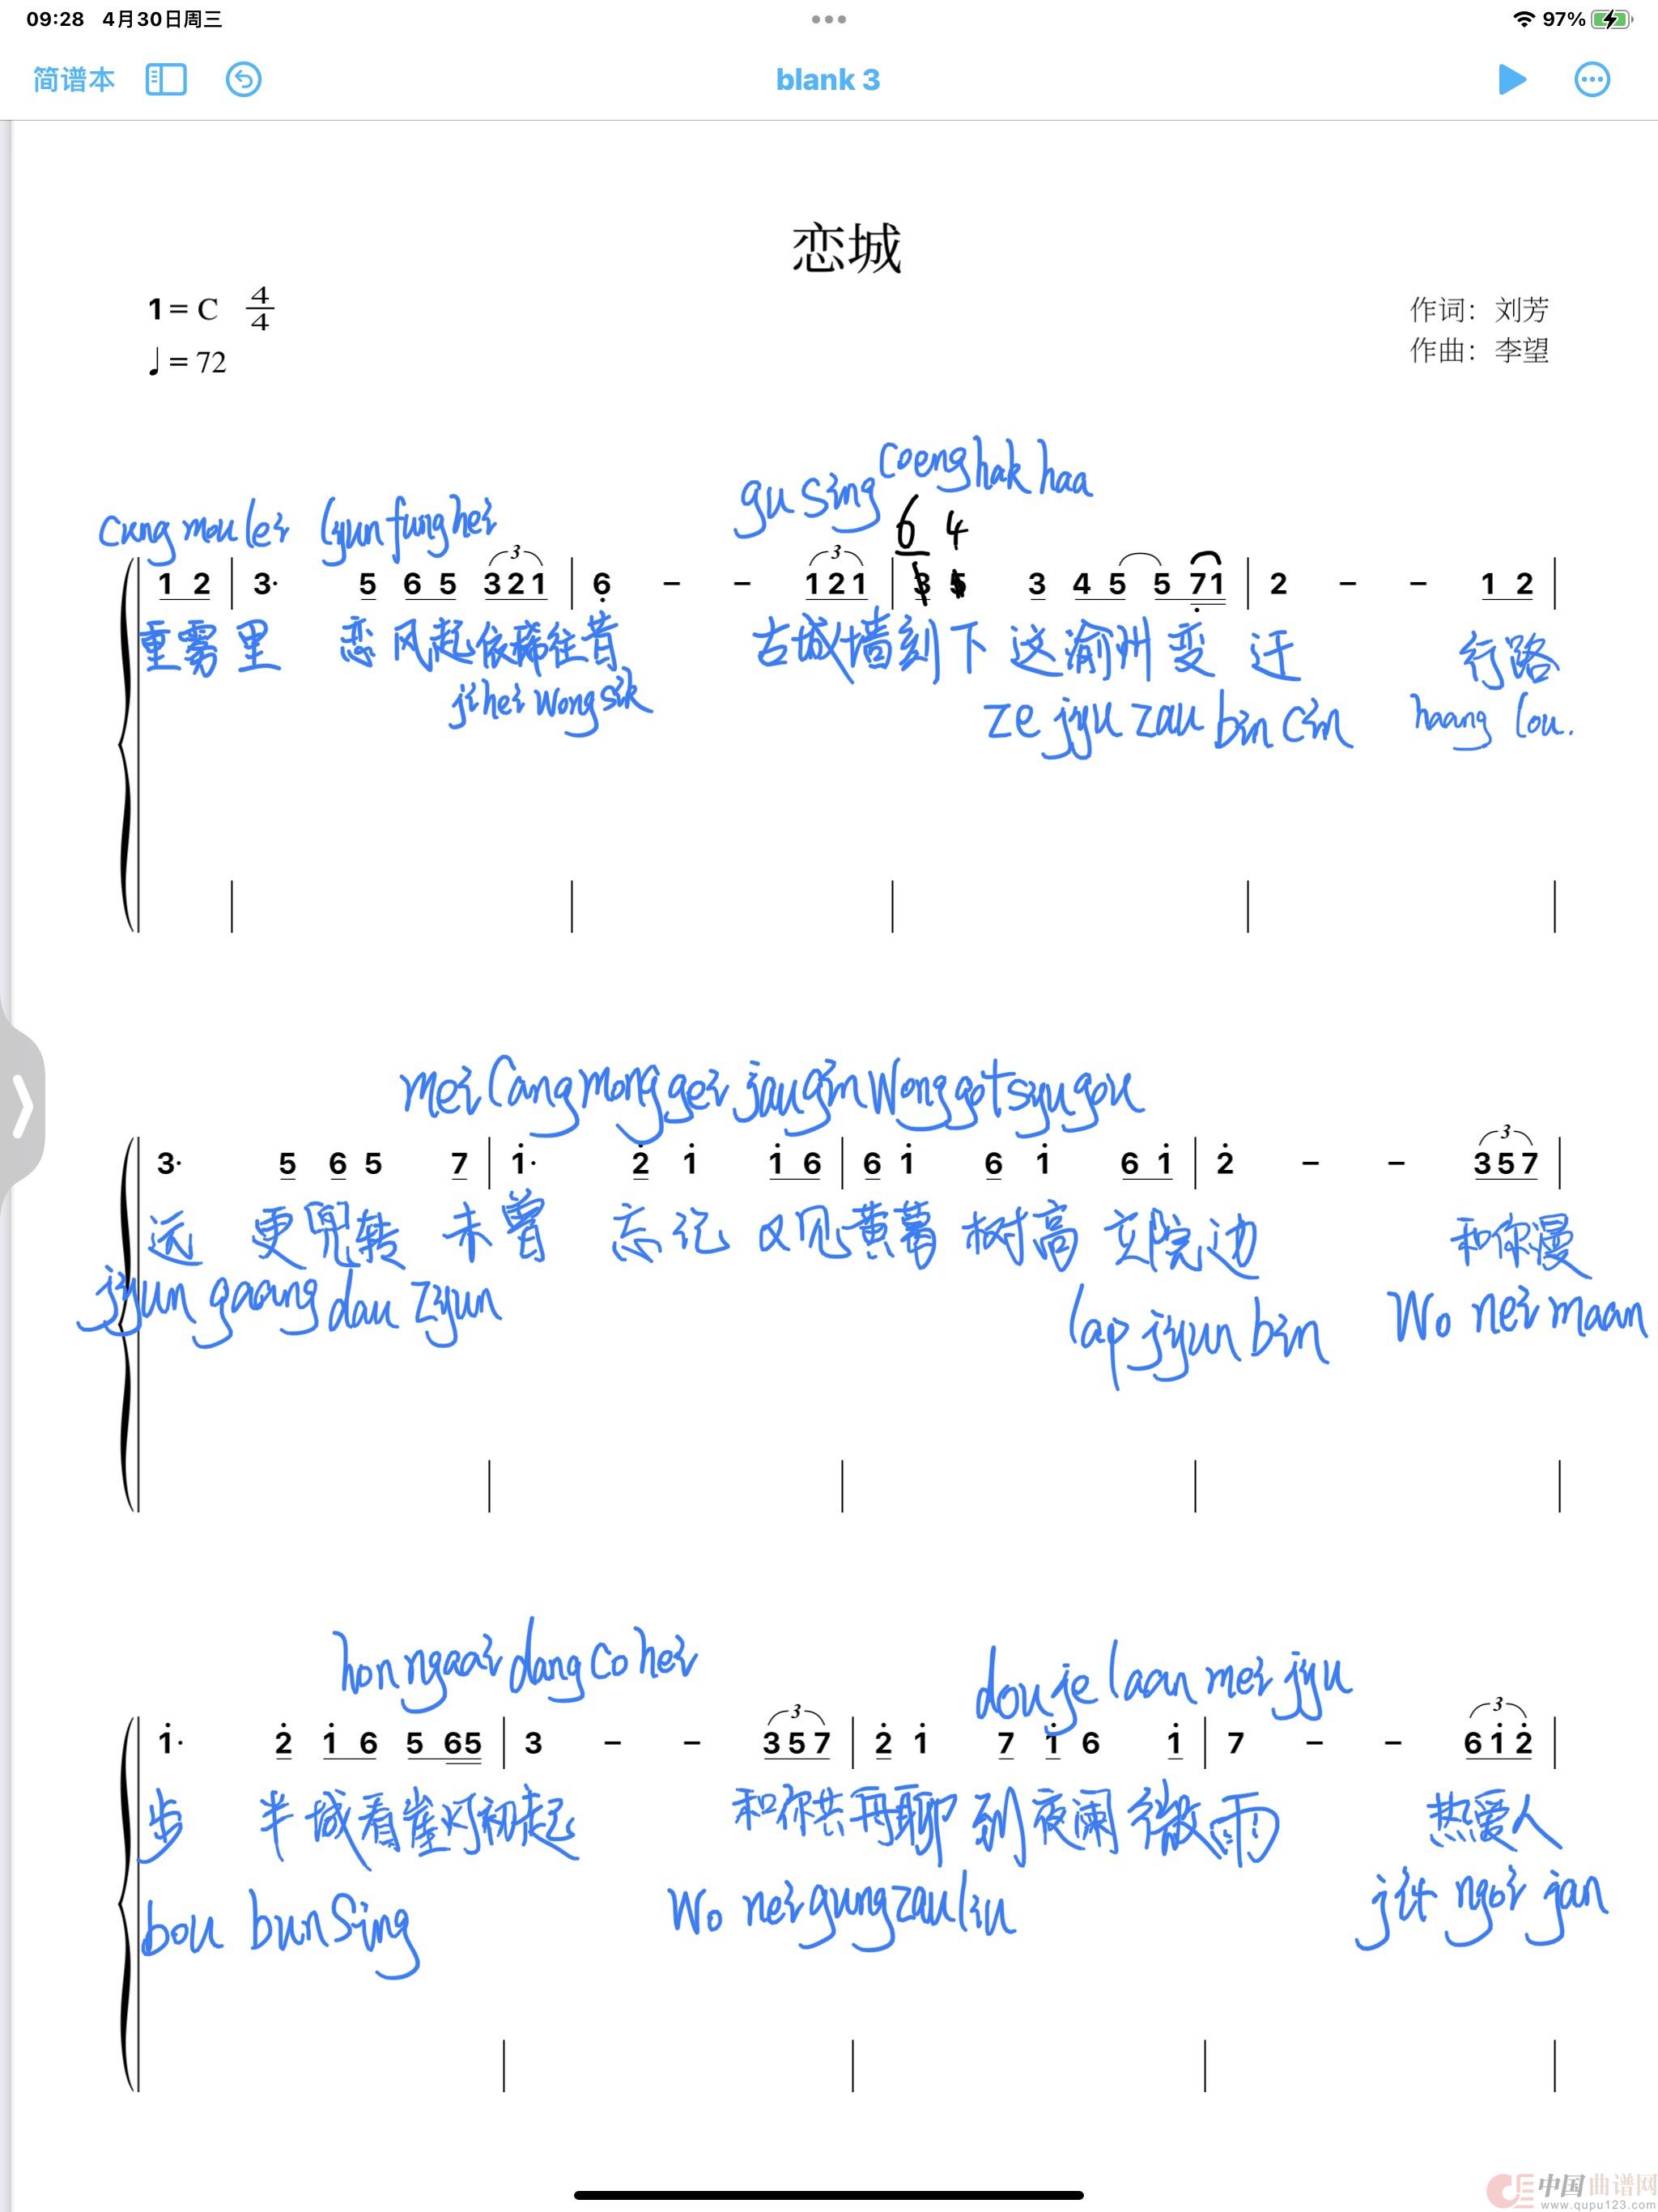 09:28 4月30日周三 97%
简谱本 blank 3
恋城
1 = C 4/4
作词：刘芳
♩ = 72
作曲：李望
gu sing coeng hak haa
cung mou lei lyun fung hei
6 4
3 3
1 2 | 3· 5 6 5 3 2 1 | 6̣ – – 1 2 1 | 3 5 3 4 5 5 7̣ 1 | 2 – – 1 2 |
重雾里 恋风起依稀往昔 古城墙刻下这渝州变迁 行路
ji hei wong sik ze jyu zau bin cin haang lou.
mei cang mong gei jau gin wong got syu gou
3
3· 5 6 5 7 | 1̇· 2̇ 1̇ 1̇ 6 | 6 1̇ 6 1̇ 6 1̇ | 2̇ – – 3 5 7 |
远 更兜转 未曾 忘记 又见黄葛 树高 立院边 和你漫
jyun gaang dau zyun lap jyun bin wo nei maan
hon ngaai dang co hei dou je laan mei jyu
3 3
1̇· 2̇ 1̇ 6 5 6 5 | 3 – – 3 5 7 | 2̇ 1̇ 7 1̇ 6 1̇ | 7 – – 6 1̇ 2̇ |
步 半城看崖灯初起 和你共再聊到夜阑微雨 热爱人
bou bun sing wo nei gung zau liu jit ngoi jan
中国曲谱网
www.qupu123.com